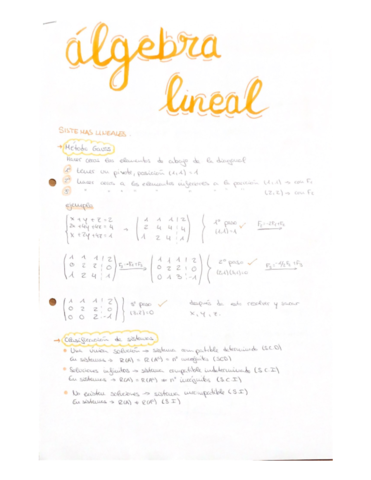 álgebra
lineal
SISTEMAS LINEALES
Método Gauss
hacer ceros los elementos de debajo de la diagonal
hacer un pivote, posición (1,1) = 1
hacer ceros a los elementos inferiores a la posición (1,1) → con F₁
(2,2) → con F₂
ejemplo
x + y + z = 2
2x + 4y + 4z = 4
x + 2y + 4z = 1
→
1 1 1 | 2
2 4 4 | 4
1 2 4 | 1
1º paso ✓
(1,1) = 1
1 1 1 | 2
0 2 2 | 0
1 2 4 | 1
1 1 1 | 2
0 2 2 | 0
0 1 3 | -1
2º paso ✓
1 1 1 | 2
0 2 2 | 0
0 0 2 | -1
3º paso ✓
(3,2) = 0
después de esto resolver y sacar
x, y, z.
→ Clasificación de sistemas
Una única solución → sistema compatible determinado (S.C.D)
En sistemas → R(A) = R(A*) = nº incógnitas (SCD)
Soluciones infinitas → sistema compatible indeterminado (S.C.I)
En sistemas → R(A) = R(A*) ≠ nº incógnitas (S.C.I)
No existen soluciones → sistema incompatible (S.I)
En sistemas → R(A) ≠ R(A*) (S.I)